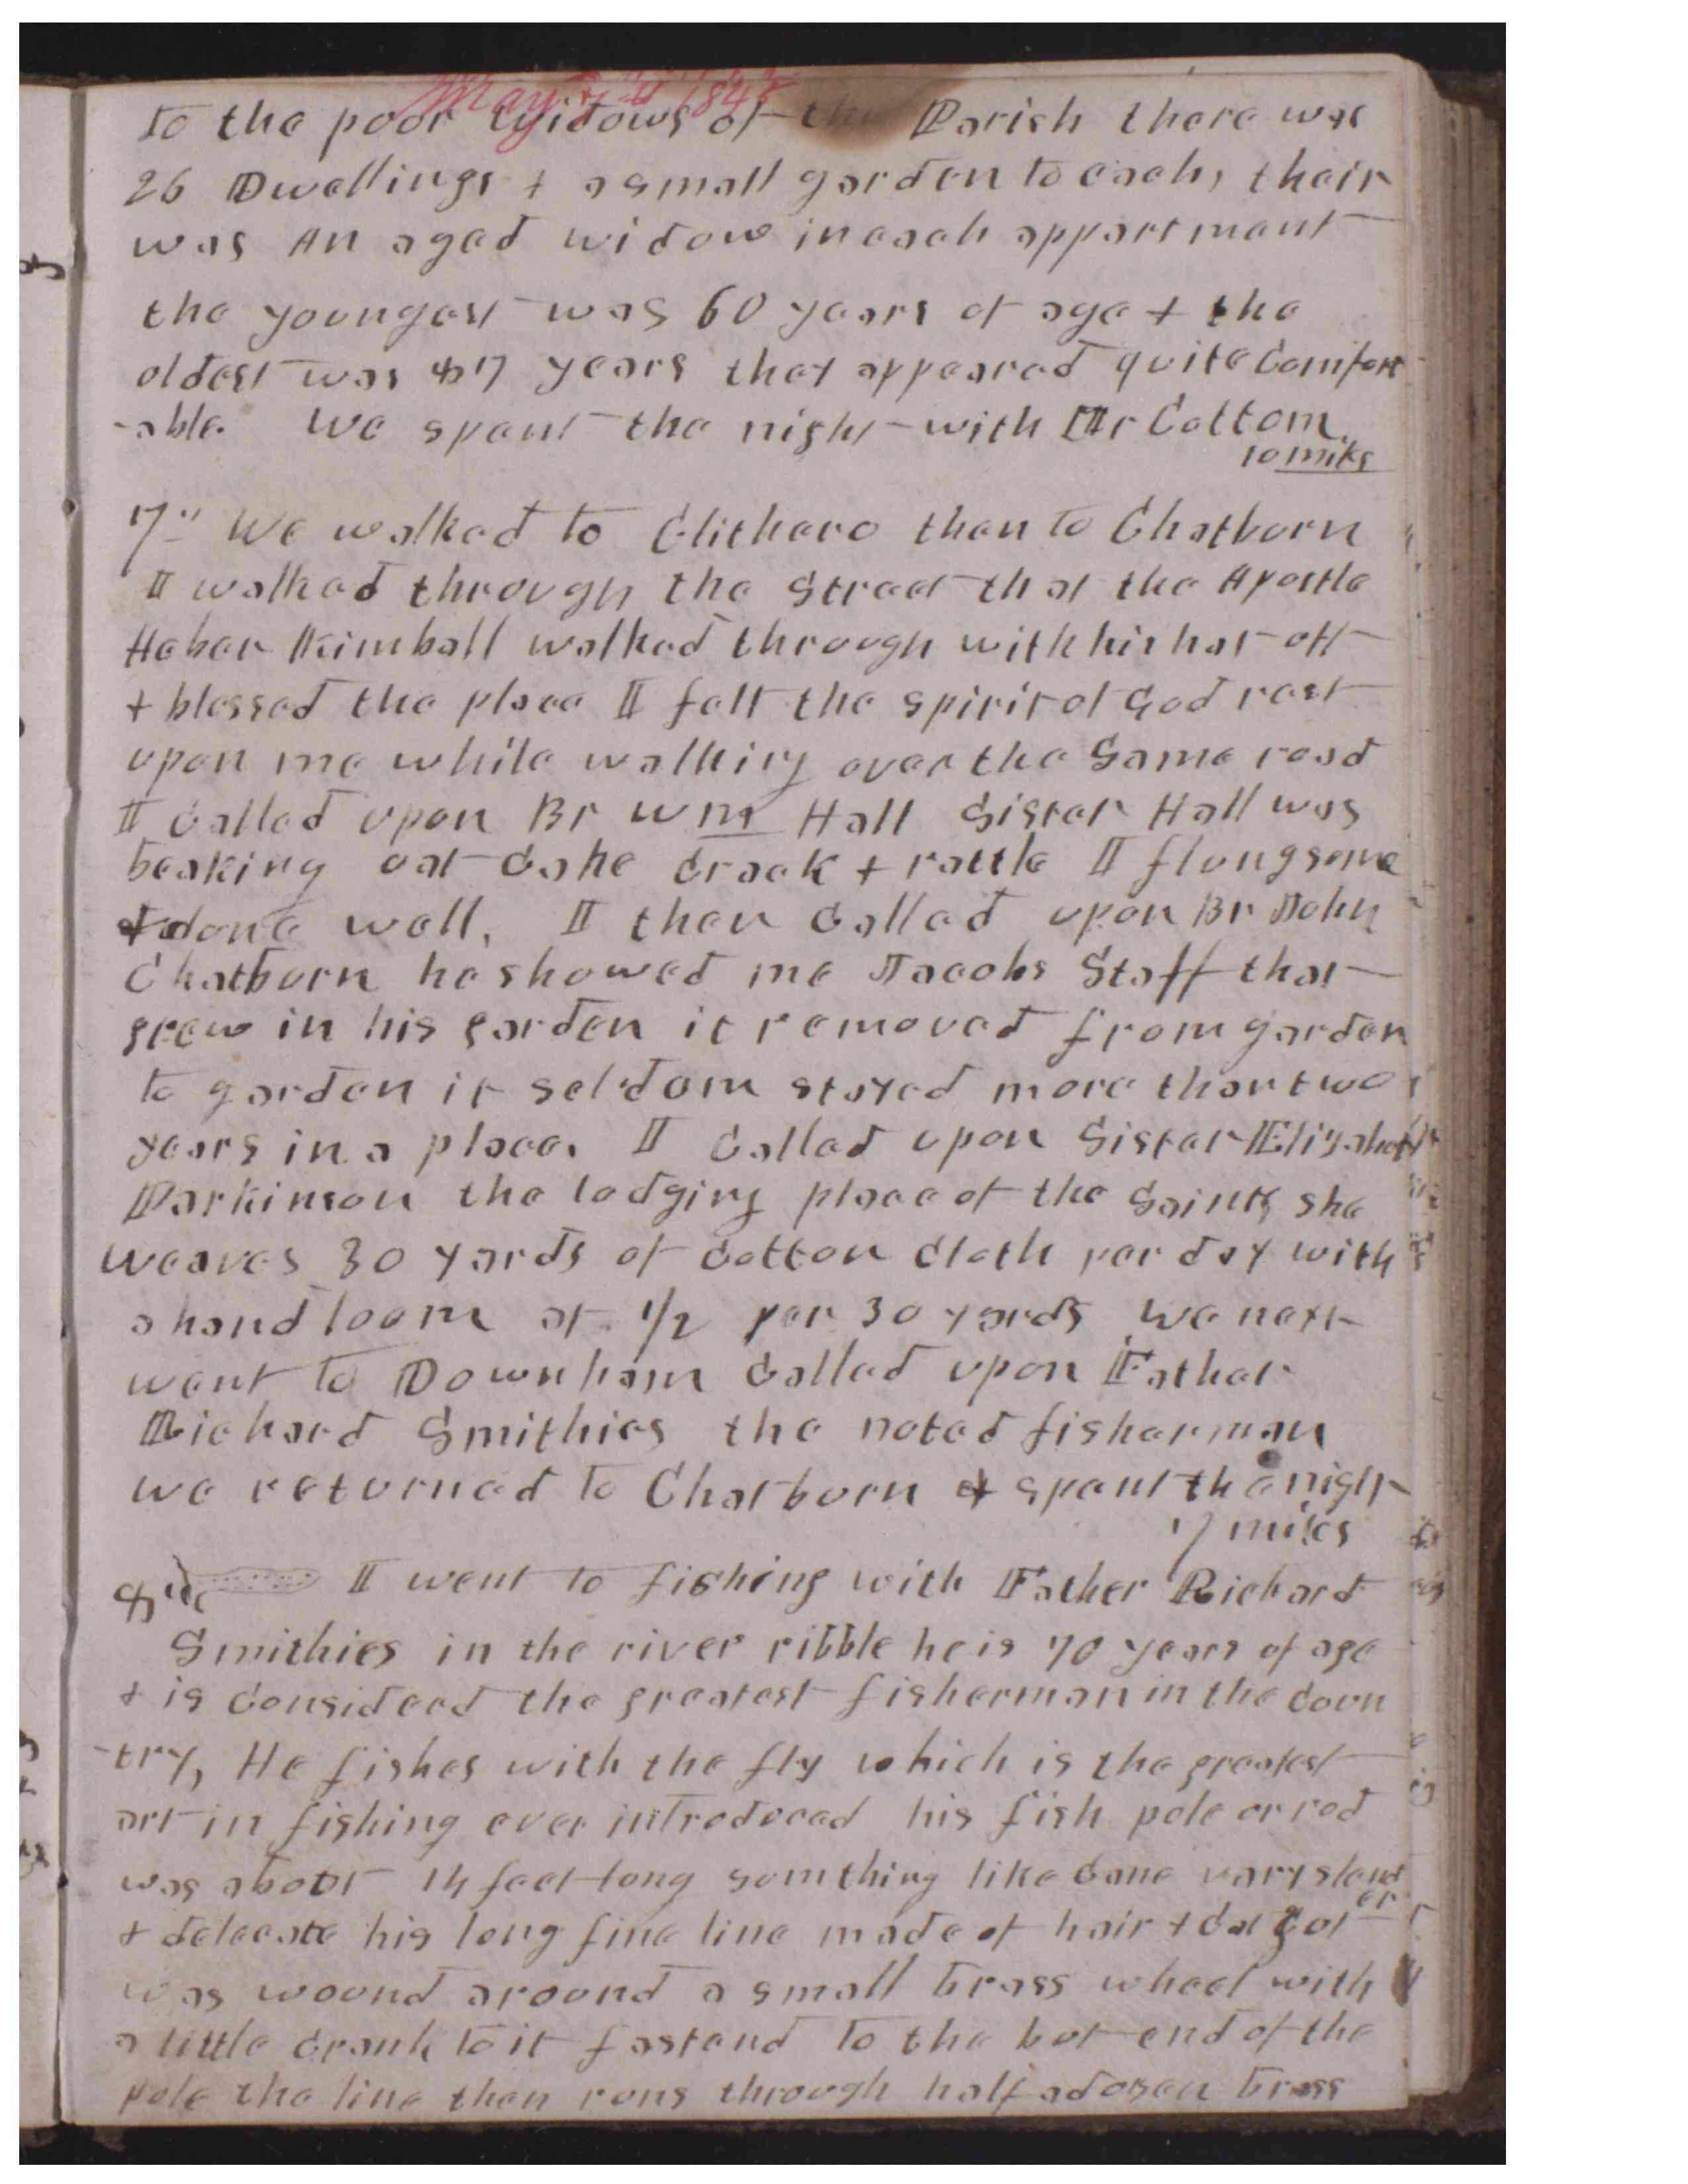 May 7th 1845
to the poor widows of the Parish there was
26 Dwellings + a small garden to each, their
was An aged widow in each appartment
the youngest was 60 years of age + the
oldest was 87 years they appeared quite Comfort
-able. We spent the night with Mr Cottom.
10 miles
7th We walked to Clithero then to Chatborn
I walked through the Street that the Apostle
Heber Kimball walked through with his hat off
+ blessed the place I felt the spirit of God rest
upon me while walking over the Same road
I Called upon Br Wm Hall Sister Hall was
beaking oat Cake Crack + rattle I flung some
+ done well. I then Called upon Br John
Chatborn he showed me Jacobs Staff that
grew in his garden it removed from garden
to garden it seldom stayed more than two
years in a place. I Called upon Sister Elizabeth
Parkinson the lodging place of the Saints she
weaves 30 yards of Cotton Cloth per day with
a hand loom at 1/2 per 30 yards We next
went to Downham Called upon Father
Richard Smithies the noted fisherman
we returned to Chatborn + spent the night
7 miles
8th I went to fishing with Father Richard
Smithies in the river ribble he is 70 years of age
+ is Considerd the greatest fisherman in the Coun
-try, He fishes with the fly which is the greatest
art in fishing ever introduced his fish pole or rod
was about 14 feet long somthing like Cane vary slend
er
+ delecate his long fine line made of hair + Cat Gut
was wound around a small brass wheel with
a little Crank to it fastend to the but end of the
pole the line then runs through half a dozen brass